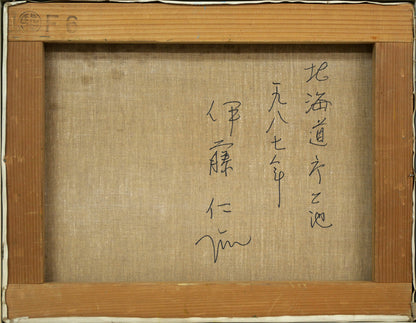 F6
北海道庁 池
一九八七年
伊藤仁